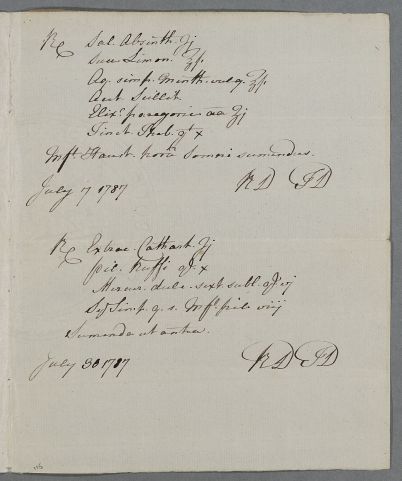 Rx Sal. Absinth. ʒj
Succ Limon. ℥ſs.
Aq. simp. Menth. vulg. ℥ſs.
Acet Scillit.
Elixr. paregoric aa ʒj
Tinct Theb. gt x
Mft. Haust. hora somni sumendus.
July 17 1787 RD JD
Rx Extrac. Cathart. ʒj
pil. Ruffi gr. x
Mercur. dulc. sext. subl. gr. vj
Syr Simp. q. s. Mft. pil. viij
Sumenda ut antea.
July 30 1787 RD JD